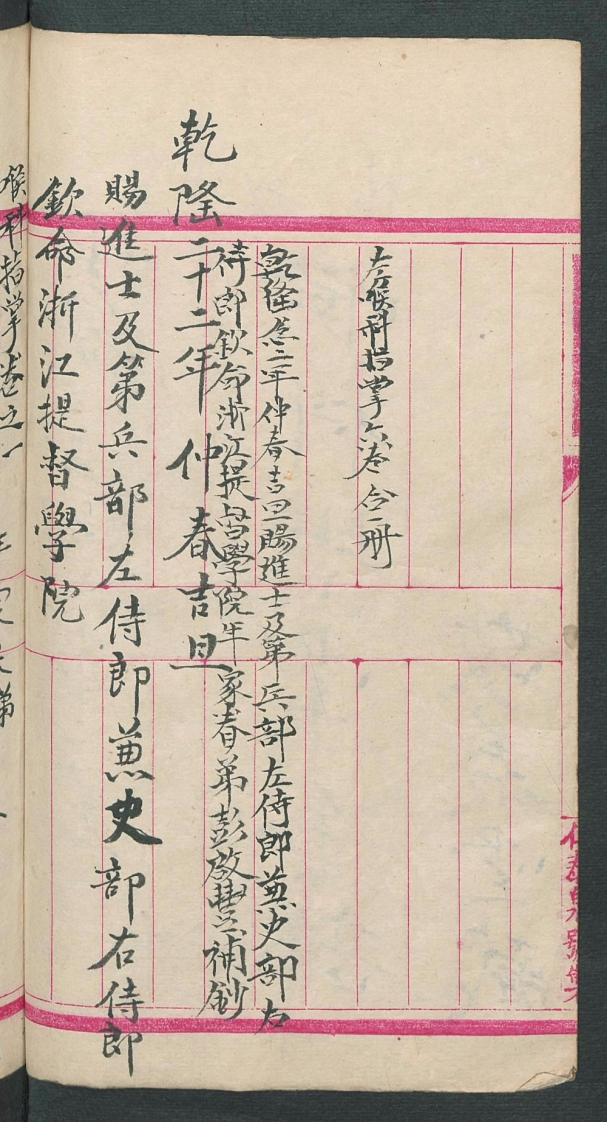 左喉科指掌六卷合一册
乾隆念二年仲春吉旦賜進士及第兵部左侍郎蕙史部右
侍郎欽命浙江提督學院年家眷弟彭啟豐補鈔
乾隆二十二年仲春吉旦
賜進士及第兵部左侍郎蕙史部右侍郎
欽命浙江提督學院
喉科指掌卷之一